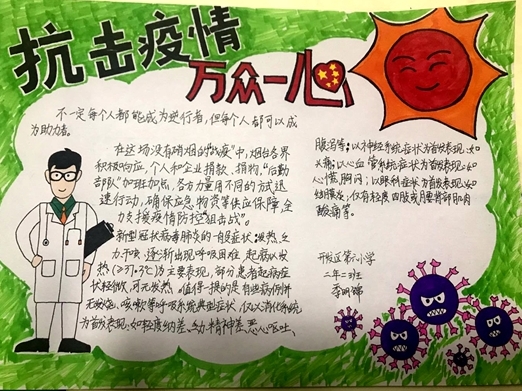 抗击疫情
万众一心
不一定每个人都能成为逆行者,但每个人都可以成
为助力者。
在这场没有硝烟的"战疫"中,烟台各界
积极响应,个人和企业捐款、捐物,"后勤
部队"加班加点,各方力量用不同的方式迅
速行动,确保应急物资等供应保障,全
力支援疫情防控"阻击战"。
新型冠状病毒肺炎的一般症状:发热、乏
力、干咳、逐渐出现呼吸困难,起病以发
热(>37.3℃)为主要表现,部分患者起病症
状轻微,可无发热。值得一提的是有些病例并
无发烧、咳嗽等呼吸系统典型症状,仅以消化系统
为首发表现:如轻度纳差、乏力、精神差、恶心呕吐、
腹泻等;以神经系统症状为首发表现:如
头痛;以心血管系统症状为首发表现:如
心慌、胸闷;以眼科症状为首发表现:如
结膜炎;仅有轻度四肢或腰背部肌肉
酸痛等。
开发区第六小学
二年二班